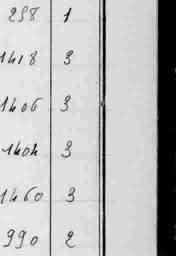 258 1
1418 3
1406 3
1404 3
1460 3
990 2